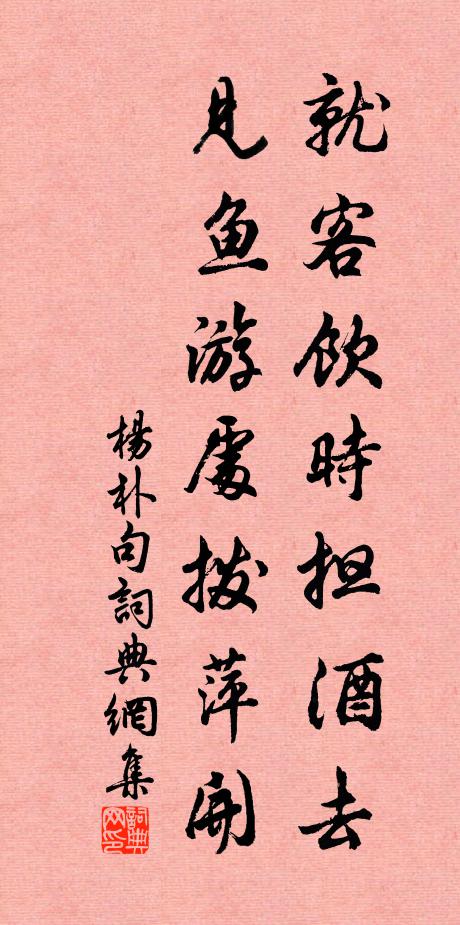 就客饮時担酒去
見鱼游處拨萍開
楊朴句詞典網集
詞典网印